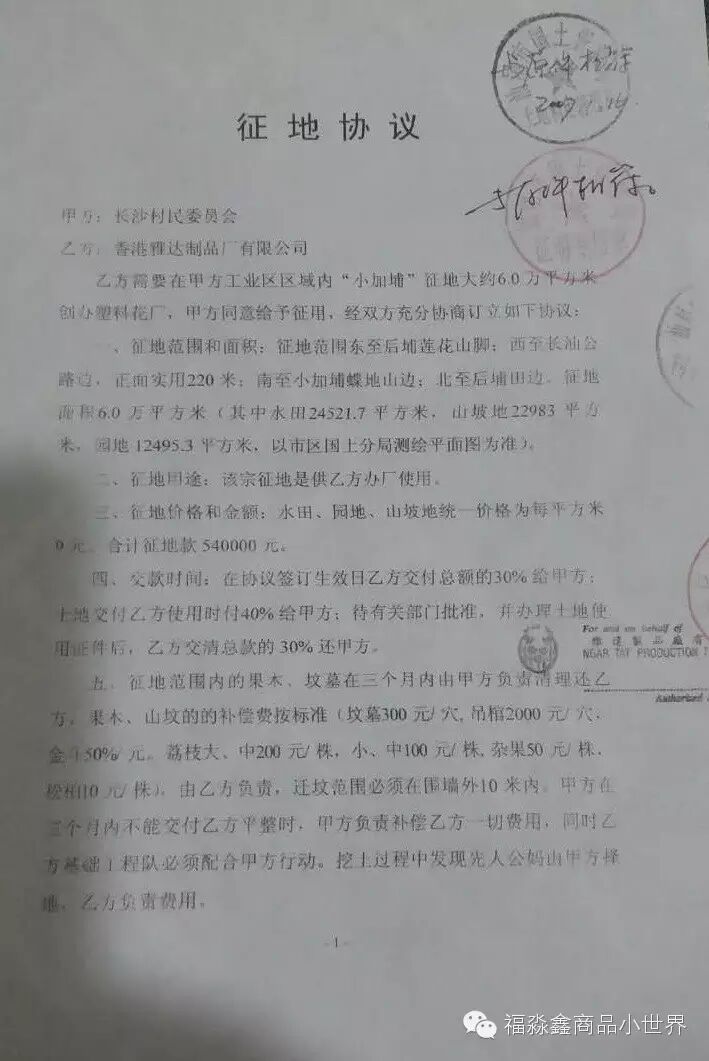 与原件相符
征地协议
与原件相符。
甲方：长沙村民委员会
乙方：香港雅达制品厂有限公司
乙方需要在甲方工业区区域内“小加埔”征地大约6.0万平方米
创办塑料花厂，甲方同意给予征用，经双方充分协商订立如下协议：
一、征地范围和面积：征地范围东至后埔莲花山脚；西至长油公
路边，正面实用220米；南至小加埔蝶地山边；北至后埔田边。征地
面积6.0万平方米（其中水田24521.7平方米，山坡地22983平方
米，园地12495.3平方米，以市区国土分局测绘平面图为准）。
二、征地用途：该宗征地是供乙方办厂使用。
三、征地价格和金额：水田、园地、山坡地统一价格为每平方米
9元。合计征地款540000元。
四、交款时间：在协议签订生效日乙方交付总额的30%给甲方；
土地交付乙方使用时付40%给甲方；待有关部门批准，并办理土地使
用证件后，乙方交清总款的30%还甲方。
For and on behalf of
雅達製品廠有
NGAR TAT PRODUCTION
Authorized
五、征地范围内的果木、坟墓在三个月内由甲方负责清理还乙
方，果木、山坟的的补偿费按标准（坟墓300元/穴,吊棺2000元/穴，
金斗50%/元。荔枝大、中200元/株，小、中100元/株,杂果50元/株，
松柏10元/株），由乙方负责，迁坟范围必须在围墙外10米内。甲方在
三个月内不能交付乙方平整时，甲方负责补偿乙方一切费用，同时乙
方基础工程队必须配合甲方行动。挖土过程中发现先人公妈由甲方择
地，乙方负责费用。
- 1 -
福淼鑫商品小世界